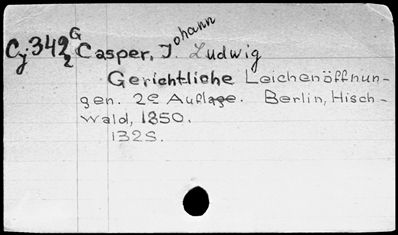 Cy342 G2 Casper, Johann Ludwig
Gerichtliche Leichenöffnun-
gen. 2e Auflage. Berlin, Hisch-
wald, 1850.
132S.